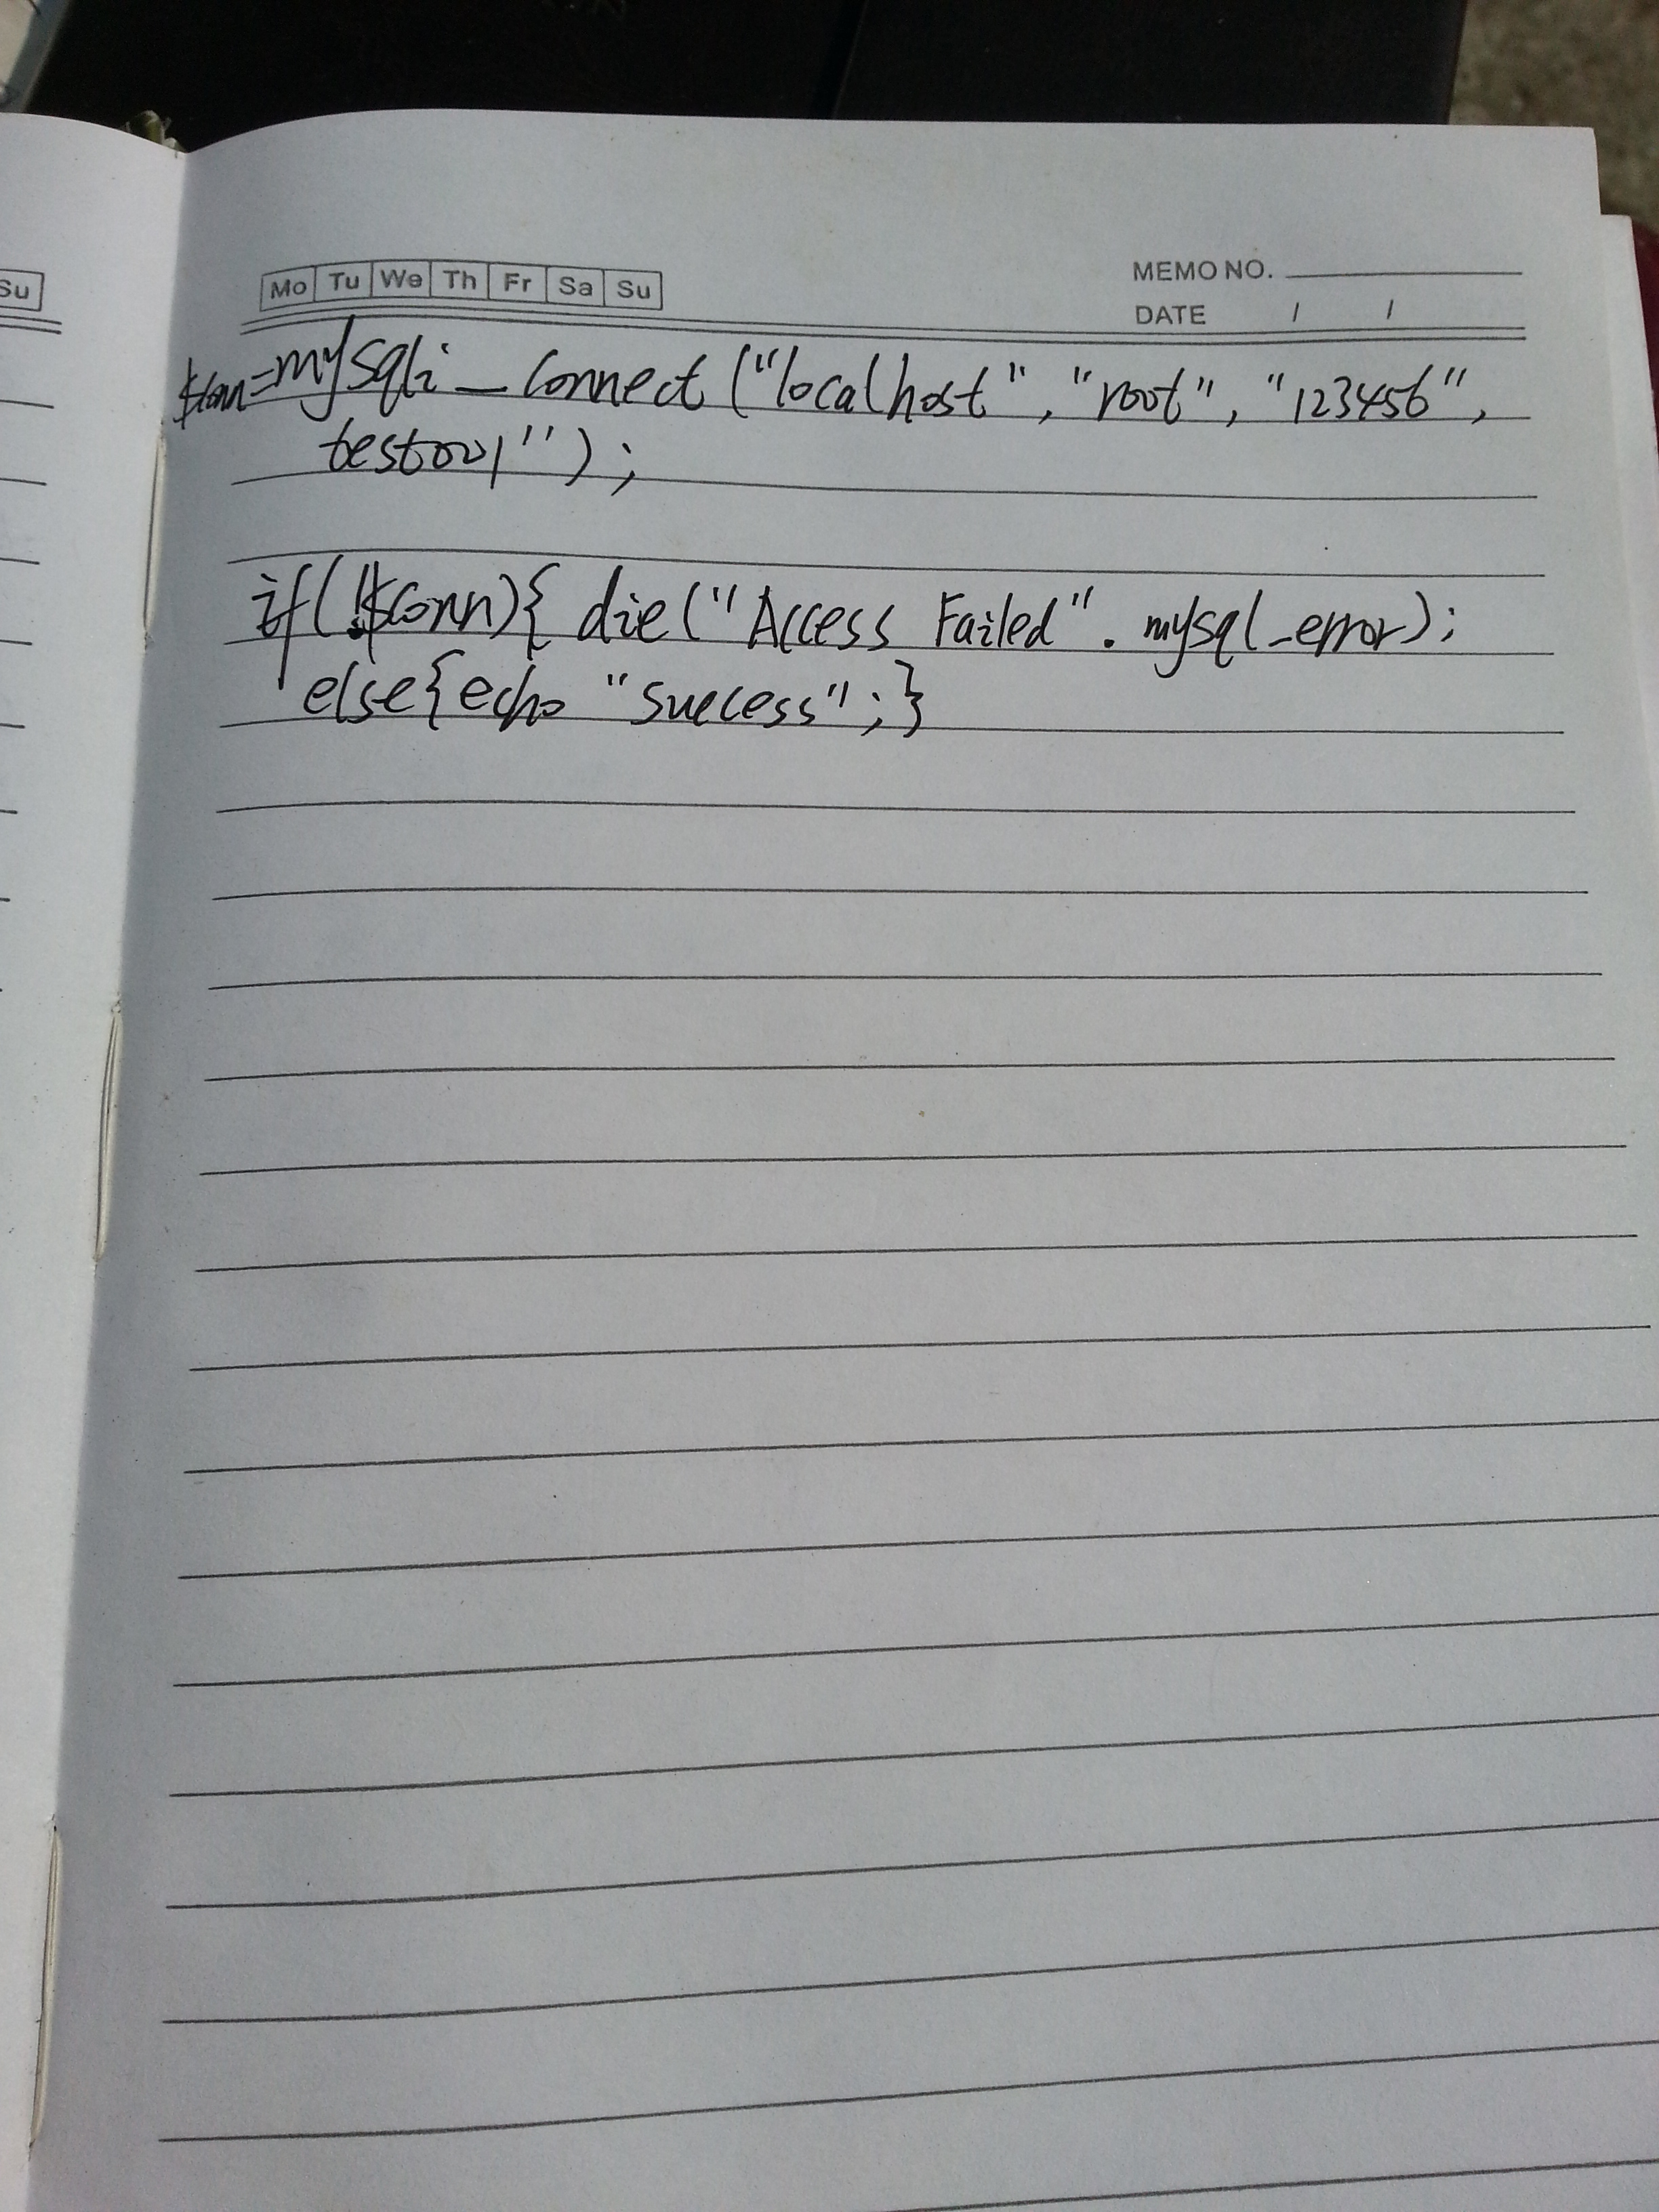 Su
Mo Tu We Th Fr Sa Su
MEMO NO.
DATE / /
$conn=mysqli_connect("localhost", "root", "123456",
test001");
if(!$conn){ die("Access Failed". mysql_error);
else{echo "success";}